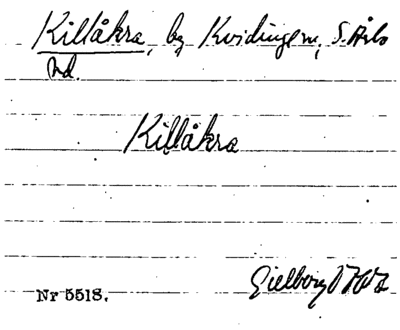 Killåkra, by Kvidinge sn, S. Åsbo
hd.
Killåkra
Nr 5518.